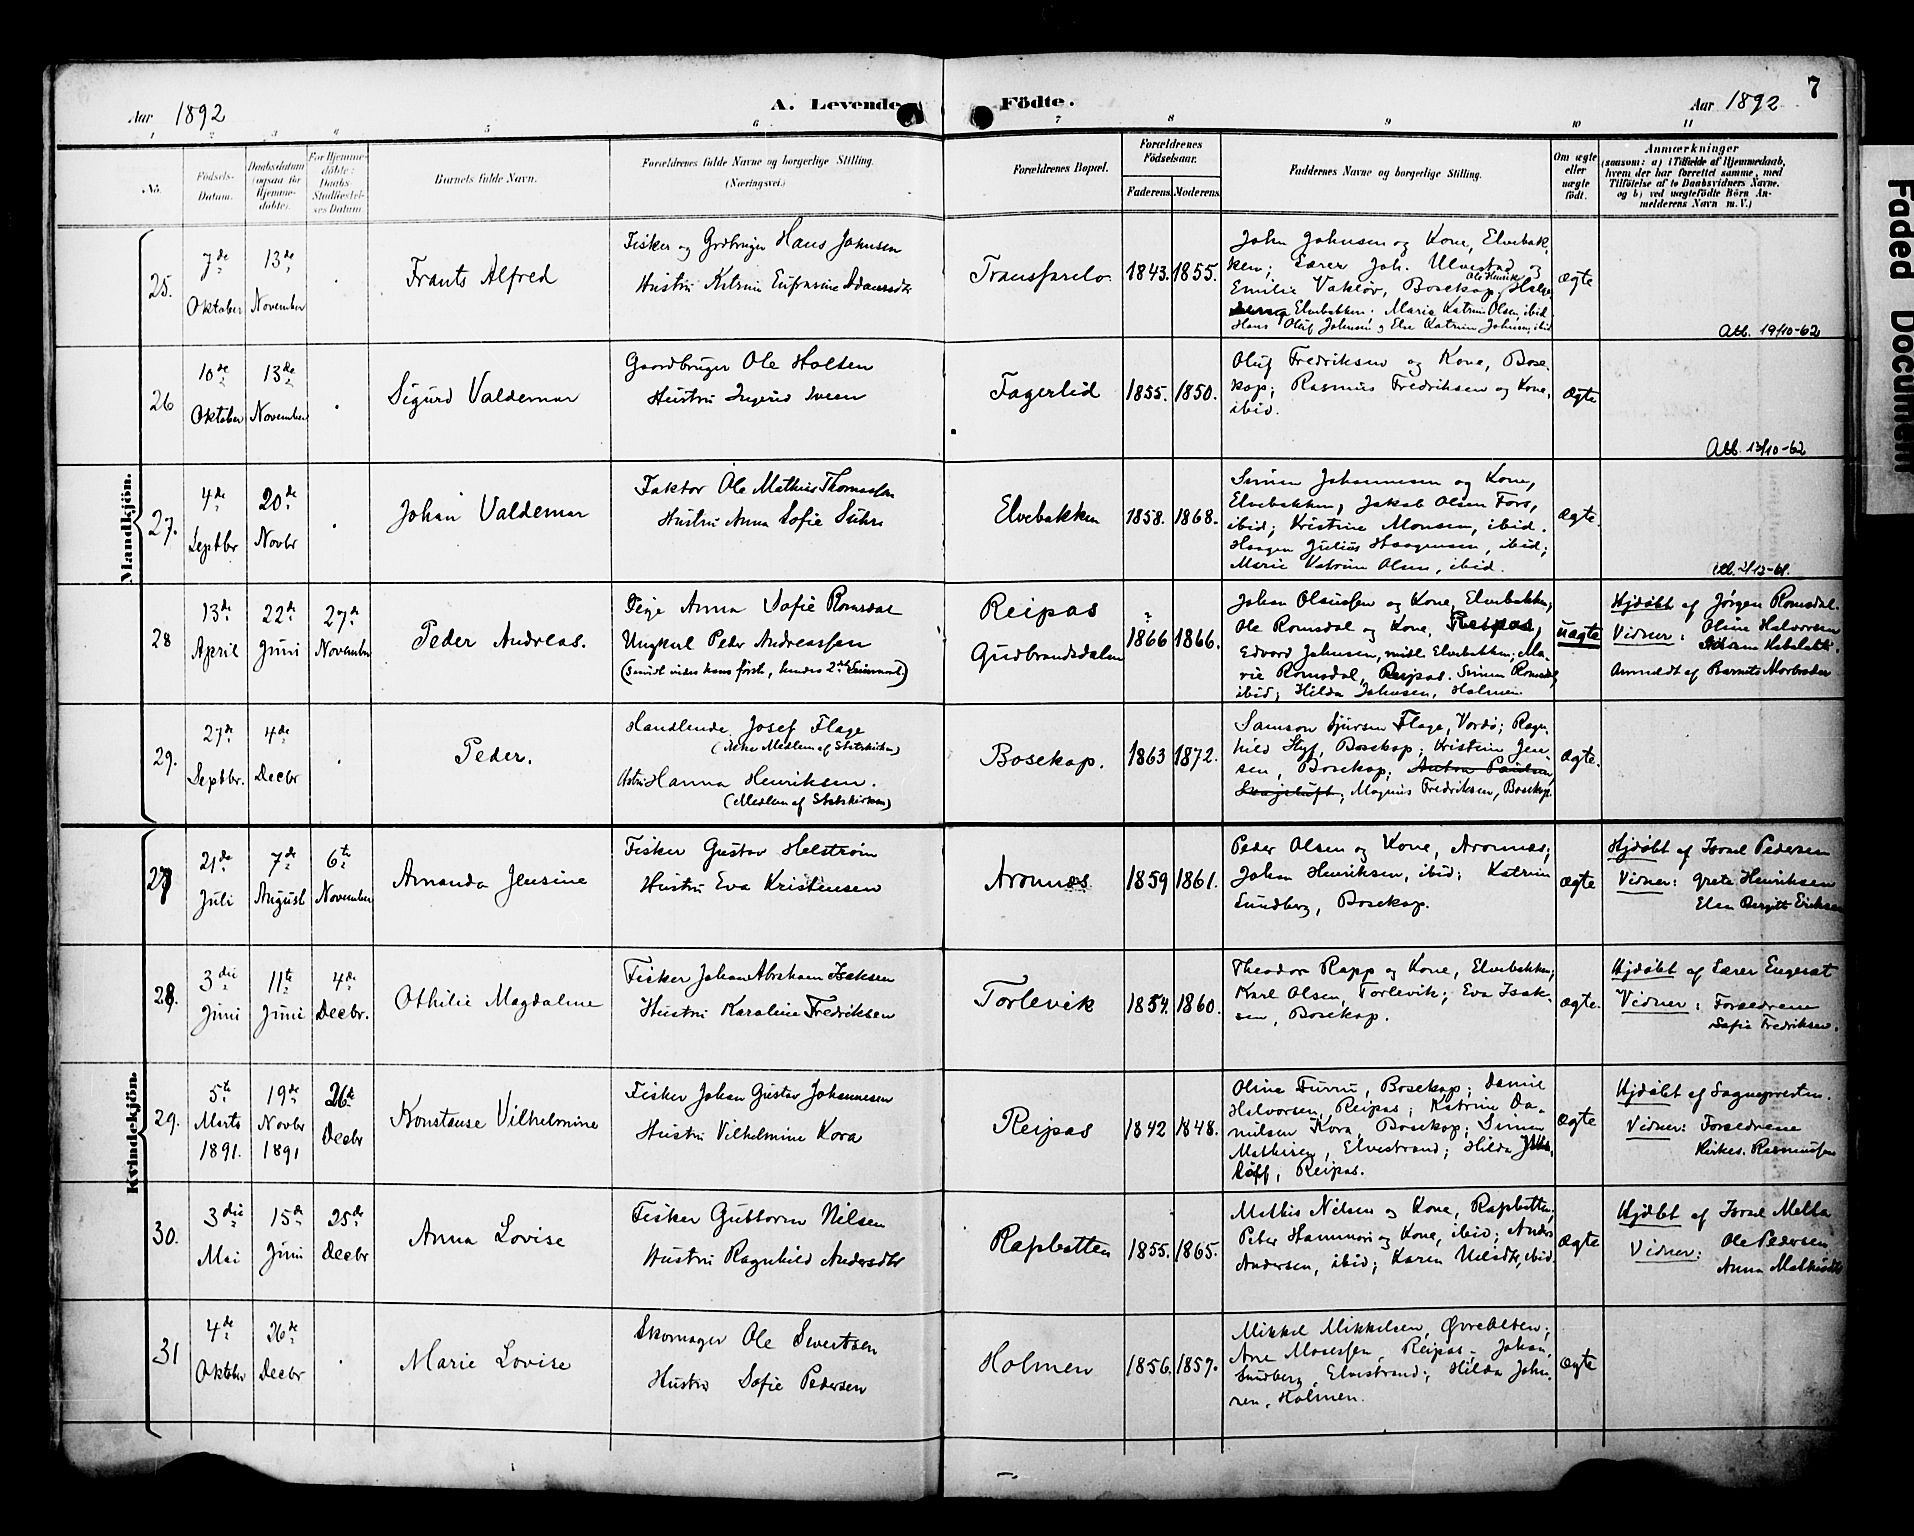 7
Aar 1892
A. Levende Födte.
Aar 1892
1 2 3 4 5 6 7 8 9 10 11
No.
Födsels-
Datum.
Daabsdatum
(ogsaa for
Hjemme-
döbte).
For Hjemme-
döbte:
Daabs-
Stadfæstel-
ses Datum.
Barnets fulde Navn.
Forældrenes fulde Navne og borgerlige Stilling.
(Næringsvei.)
Forældrenes Bopæl.
Forældrenes
Födselsaar.
Faderens. Moderens.
Faddernes Navne og borgerlige Stilling.
Om ægte
eller
uægte
födt.
Anmærkninger
(saasom: a) i Tilfælde af Hjemmedaab,
hvem der har forrettet samme, med
Tilföielse af to Daabsvidners Navne,
og b) ved uægtefödte Börn An-
melderens Navn m. V.)
Mandkjön.
25.
7de
Oktober
13de
November
Frants Alfred
Fisker og Grdbruger Hans Johnsen
Hustru Katrine Eufrosine Adamsdtr
Transfarelv
1843. 1855.
John Johnsen og Kone, Elvebak-
ken; Lærer Joh. Ulvestad og
Emilie Vakløv, Bosekop, Ole Henrik
Elvebakken; Marie Katrine Olsen, ibid.
Hans Oluf Johnsen, og Else Katrine Johnsen, ibid
Ægte
Att. 19/10-62
26
10de
Oktober
13de
November
Sigurd Valdemar
Gaardbruger Ole Holten
Hustru Ingerid Iveen
Fagerlid
1855. 1850.
Oluf Fredriksen og Kone, Bose-
kop; Rasmus Fredriksen og Kone,
ibid.
Ægte
Att. 13/10-62
27.
4de
Septbr
20de
Novbr
Johan Valdemar
Faktor Ole Mathias Thomassen
Hustru Anna Sofie Suhr
Elvebakken
1858. 1868.
Simon Johannesen og Kone,
Elvebakken, Jakob Olsen Fors,
ibid; Kristine Monsen, ibid.
Haagen Julius Haagensen, ibid;
Marie Katrine Olsen, ibid.
Ægte.
28
13de
April
22de
Juni
27de
November
Peder Andreas.
Pige Anna Sofie Romsdal
Ungkarl Peder Andreassen
(Samdt vides hans første, hendes 2det Leiermaal.)
Reipas
Gudbrandsdalen
1866 1866.
Johan Olaussen og Kone, Elvebakken;
Ole Romsdal og Kone, Reipas,
Edvard Johnsen, midl Elvebakken; Ma-
rie Romsdal, Reipas. Simon Romsdal,
ibid; Hilda Johnsen, Holmen
uægte
Hjdøbt af Jørgen Romsdal.
Vidner: Oline Halvorsen
Anmeldt af Barnets Morbroder
29.
27de
Septbr.
4de
Decbr
Peder.
Handlende Josef Flage
(Ikke Medlem af Statskirken)
Hustru Hanna Henriksen.
(Medlem af Statskirken)
Bosekop.
1863 1872.
Samson Sjursen Flage, Vardø; Ragn-
hild Hyf, Bosekop; Kristine Jen-
sen, Bosekop; Anton Paulsen,
Magnus Fredriksen, Bosekop.
Ægte.
Kvindekjön.
27
21de
Juli
7de
August
6te
November
Amanda Jensine
Fisker Gustav Helstrøm
Hustru Eva Kristensen
Aronnæs
1859 1861.
Peder Olsen og Kone, Aronnæs;
Johan Henriksen, ibid; Katrine
Sundberg, Bosekop.
Ægte
Hjdøbt af Israel Pedersen
Vidner: Grete Henriksen
Elen Bergitt Eriksen
28.
3die
Juni
11te
Juni
4de
Decbr.
Othilie Magdalene
Fisker Johan Abraham Isaksen
Hustru Karoline Fredriksen
Torlevik
1854. 1860.
Theodor Rapp og Kone, Elvebakken;
Karl Olsen, Torlevik; Eva Isak-
sen, Bosekop.
Ægte.
Hjdøbt af Lærer Engesat
Vidner: Forældrene
Sofie Fredriksen.
29.
5te
Marts
1891.
19de
Novbr
1891
26de
Decbr
Konstanse Vilhelmine
Fisker Johan Gustav Johannesen
Hustru Vilhelmine Kora
Reipas
1842 1848.
Olina Furun, Bosekop; Daniel
Halvorsen, Reipas; Katrine Da-
nielsen Kora, Bosekop; Simon
Mathisen, Elvestrand; Hilda
Reipas.
Ægte
Hjdøbt af Sognepresten.
Vidner: Forældrene
Kirkes. Rasmussen
30.
3die
Mai
15de
Juni
25de
Decbr
Anna Lovise
Fisker Guttorm Nilsen
Hustru Ragnhild Andersdtr
Rapbotten
1855. 1865.
Mathis Nilsen og Kone, Rapbotten,
Peter Hammari og Kone, ibid; Anders
Andersen, ibid; Karen Nilsdtr, ibid
Ægte
Hjdøbt af Israel Matta
Vidner: Ole Pedersen
Anna Mathisdtr
31
4de
Oktober
26de
Decbr
Marie Lovise
Skomager Ole Sivertsen
Hustru Sofie Pedersen
Holmen
1856. 1857.
Mikkel Mikkelsen, ØvreAlten;
Ane Mosessen, Reipas. Johan
Sundberg, Elvestrand; Hilda John-
sen, Holmen.
Ægte
Faded Document